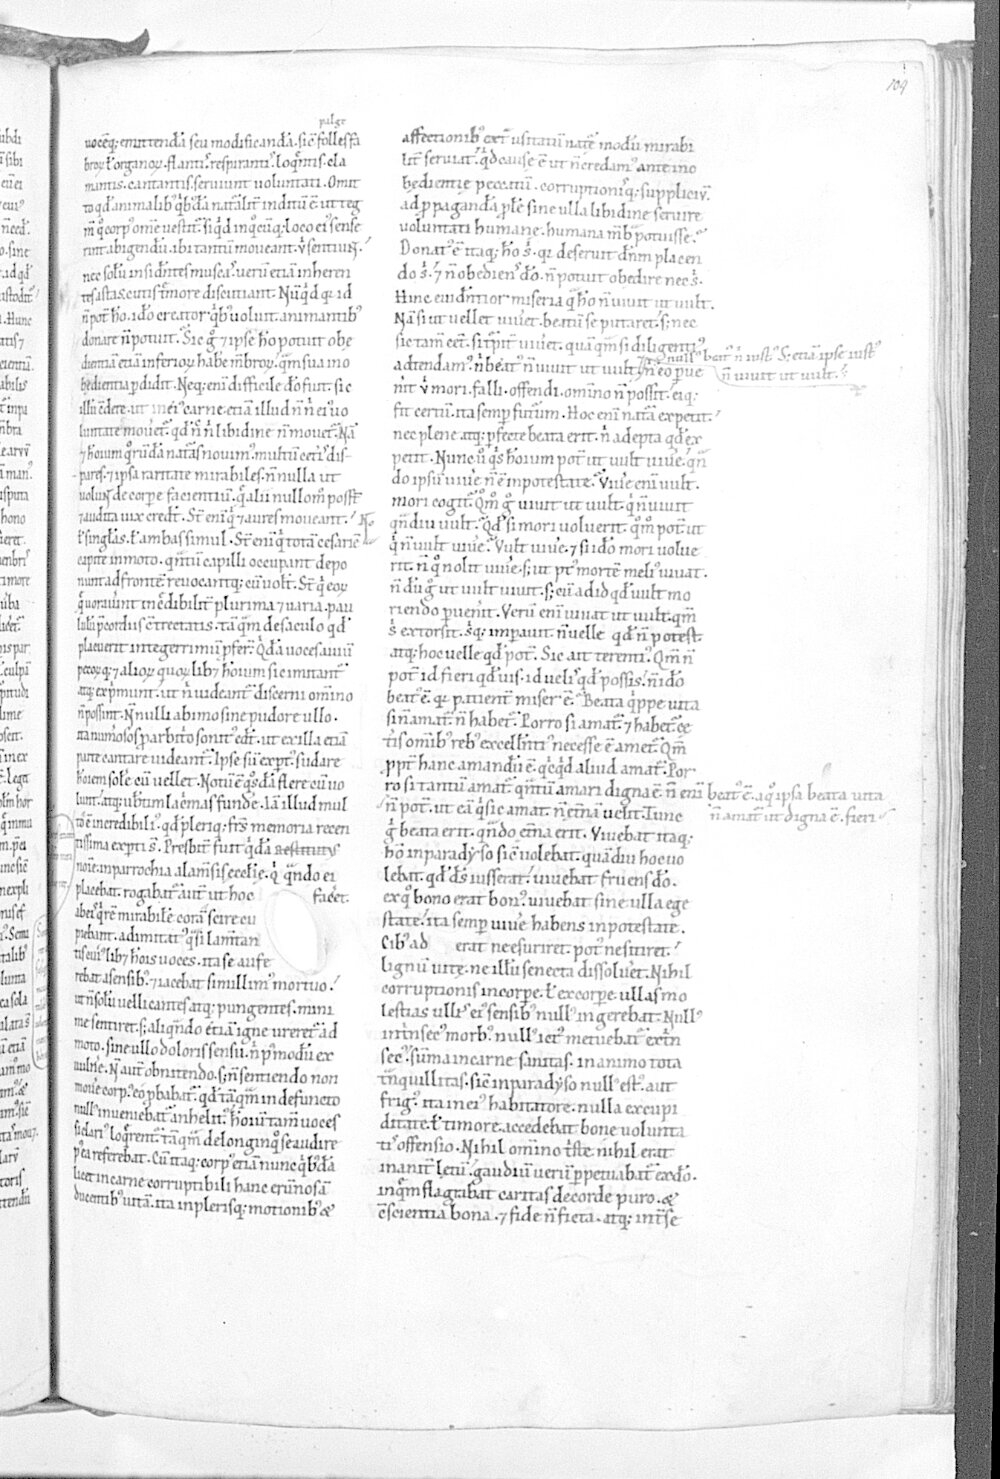 104
pulge
uocēq; emittendā seu modificandā. sic̄ folles fa
broꝝ ł organoꝝ. flantiˢ. respirantiˢ. loq̄ntis. cla
mantis. cantantis. seruiunt uoluntati. Omit
to qd̄ animalibˀ qͥbꝰdā natałit̄ inditū ē. ut teg
m̄ q̊ corpˀ om̄e uestit̄. siqͥd inq̊cūq; loco eiˀ sense
rint abigendū. abi tantū moueant. ů sentiunt.
nec solū insidentes muscas. uerū etiā inheren
tes hastas cutis t̄more discutiant. Nūqͥd qꝛ id
n̄ pot̄ hō. ido creator qͥbꝰ uoluit animantibˀ
donare n̄ potuit. Sic ḡ ⁊ ipse hō potuit obe
dientiā etiā inferioꝝ habe m̄broꝝ. quā sua ino
bedientia pdidit. Neq; enī difficile dō fuit. sic
illū c̄dere. ut in eiˀ carne etiā illud n̄ n̄ eiˀ uo
luntate mouet̄. qd̄ n̄ n̄ libidine n̄ mouet̄. Nā
⁊ hoium q̊rūdā natās nouimˀ multū cet̄iˢ dis-
pares. ⁊ ipsa raritate mirabiles. n̄ nulla ut
uolunt de corpe facientiū. q̄ alii nullom̊ poss̄t
⁊ audita uix credt̄. St̄ enī qͥ ⁊ aures moueant.
ł singłas. ł ambas simul. St̄ enī qͥ totā cesariē
capite inmoto. q̄ntū capilli occupant depo
nunt ad frontē reuocantq; cū uolt̄. St̄ qͥ eoꝝ
q̄ uorauint incredibilit̄ plurima ⁊ uaria. pau
lulū pcordiis c̄trectatis. tāq̄m de saculo qd̄
placuerit integerrimū pfert̄. Qͥdā uoces auiū
pecoꝝq; ⁊ alioꝝ quoꝝ libꝫ hoium sic imitant̄
atq; exp̄munt. ut n̄ uideant̄ discerni omīno
n̄ possint. N̄ nulli ab imo sine pudore ullo.
ita numosos p arbitͦ sonitˀ edt̄. ut ex illa etiā
parte cantare uideant̄. Ipse sū exptˀ sudare
hoiem solē cū uellet. Notū ē qͦsdā flere cū uo
lunt. atq; ubtim lacmas funde. Iā illud mul
to ē incredibiliˀ. qd̄ pleriq; frs̄ memoria recen
tissima expti s̄. Presbit̄ fuit qͥdā restitutˀ
noīe. in parrochia alam̄sis ecclie. qͥ q̄ndo ei
placebat. rogabat̄ aut̄ ut hoc facet̄.
abeiˀ qͥ rē mirabilē corā scire cu
piebant. ad imitatˀ qͣsi lam̄tan
tis cuiˀ libꝫ hoīs uoces. ita se aufe
rebat a sensibˀ. ⁊ iacebat simillimˀ mortuo.
ut n̄ solū uellicantes atq; pungentes. mini
me sentiret. s; aliq̄ndo etiā igne ureret̄ ad
moto. sine ullo doloris sensu. n̄ p̄ modū ex
uulnͥe. N̄ aut̄ obnitendo. s; n̄ sentiendo non
moue corpˀ. eo pbabat̄. qd̄ tāq̄m in defuncto
nullˀ inueniebat̄ anhelitˀ. hoiū tam̄ uoces
si clariˀ loq̄rent̄. tāq̄m de longinq̊ se audire
p̊ea referebat. Cū itaq; corpˀ etiā nunc qͥbꝰdā
licet in carne corruptibili hanc erūnosā
ducentibˀ uitā. ita in plerisq; motionibˀ &
affectionibˀ ext̄ usitatū nat̄e modū mirabi
lit̄ seruiat. qͥd cause ē ut n̄ credamˀ ante ino
bedientie peccatū. corruptionisq; suppliciū.
ad ppagandā plē sine ulla libidine seruire
uoluntati humane. humana m̄ba potuisse.
Donatˀ ē itaq; hō s̄. qꝛ deseruit dn̄m placen
do s̄. ⁊ n̄ obedienˢ dō. n̄ potuit obedire nec s̄.
Hinc euidentior miseria q̄ hō n̄ uiuit ut uult.
Nā si ut uellet uiuet. beatū se putaret. s; nec
sic tam̄ eēt. si t̄pit̄ uiuet. quāq̄m si diligentiˀ
adtendamˀ. n̄ beatˀ n̄ uiuit ut uult.
itaq; nullˀ beatˀ n̄ iustˀ. S; etiā ipse iustˀ
n̄ uiuit ut uult.
n̄ eo pue
n̄it ů mori. falli. offendi. omīno n̄ possit. eiq;
fit certū. ita semp futurum. Hoc enī natā expetit.
nec plene atq; pfecte beata erit. n̄ adepta qd̄ ex
petit. Nunc ů qͥs hoium pot̄ ut uult uiue. q̄n
do ipsū uiue n̄ ē in potestate. Viue enī uult.
mori cogit̄. Qͦm̊ ḡ uiuit ut uult. qͥ n̄ uiuit
q̄ndiu uult. Qd̄ si mori uoluerit. qͦm̊ pot̄. ut
qͥ n̄ uult uiue. Vult uiue. ⁊ si ido mori uolue
rit. n̄ q̊ nolit uiue. s; ut pˢ mortē meliˀ uiuat.
n̄ dū ḡ ut uult uiuit. s; cū ad id qd̄ uult mo
riendo puenit. Verū enī uiuat ut uult. q̄m
s̄ extorsit. s̄q; impauit. n̄ uelle qd̄ n̄ potest.
atq; hoc uelle qd̄ pot̄. Sic ait terentiˀ. Q̄m n̄
pot̄ id fieri qd̄ uis. id ueli qd̄ possis. n̄ ido
beatˀ ē. qꝛ patient̄ miser ē. Beata qͥppe uita
si n̄ amat̄. n̄ habet̄. Porro si amat̄. ⁊ habet̄. ce
tͥis om̄ibˀ rebˀ excellentiˀ necesse ē amet̄. Q̄m
ppt̄ hanc amandū ē. qͥcqͥd aliud amat̄. Por
ro si tantū amat̄. q̄ntū amari digna ē. n̄ enī beatˀ ē. a q̊ ipsa beata uita
n̄ amat̄ ut digna ē. fieri
n̄ pot̄. ut eā qͥ sic amat. n̄ et̄nā uelit. Tunc
ḡ beata erit. q̄ndo et̄na erit. Viuebat itaq;
hō in paradyso sic̄ uolebat. quādiu hoc uo
lebat. qd̄ dˢ iusserat. uiuebat fruens dō.
ex q̊ bono erat bonˀ. uiuebat sine ulla ege
state. ita semp uiue habens in potestate.
Cibˀ ad erat ne esuriret. potˀ ne sitiret.
lignū uite. ne illū senecta dissoluet. Nihil
corruptionis in corpe. ł ex corpe. ullas mo
lestias ullis eiˀ sensibˀ nullˀ ingerebat. Nullˀ
int̄nsecˀ morbˀ. nullˀ ictˀ metuebat̄ ext̄n
secˀ. sūma in carne sanitas. in animo tota
t̄nquillitas. sic̄ in paradyso nullˀ estˀ. aut
frigˀ. ita in eiˀ habitatore. nulla ex cupi
ditate. ł timore. accedebat bone uolunta
tiˢ offensio. Nihil omīno t̄ste. nihil erat
inanit̄ letū. gaudiū uerū ppetuabat̄ ex dō.
in q̄m flagͣbat caritas de corde puro. &
c̄scientia bona. ⁊ fide n̄ ficta. atq; int̄ se